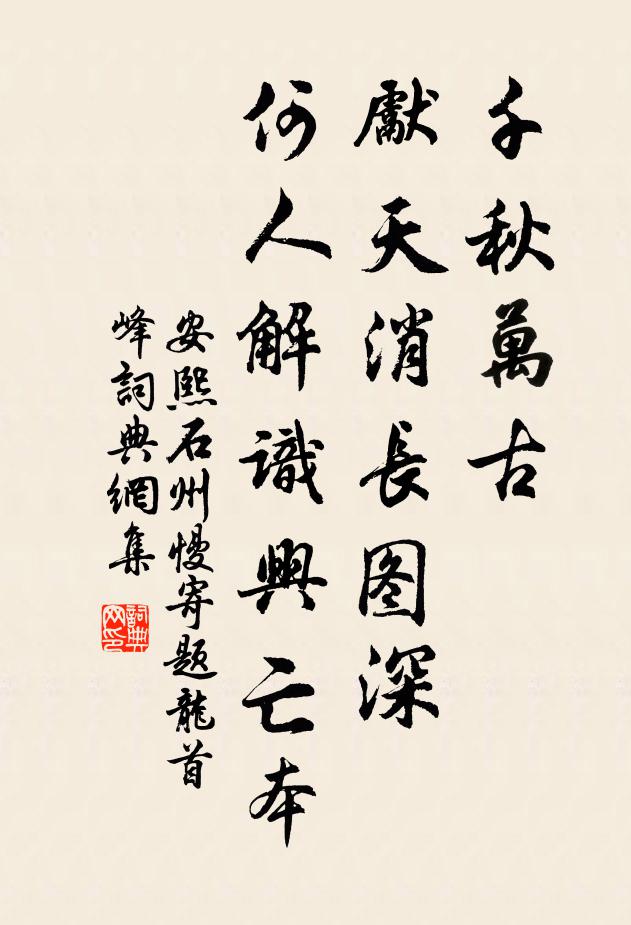 千秋萬古
獻天消長图深
何人解識興亡本
安熙石州慢寄題龍首
峰詞典網集
詞典网印